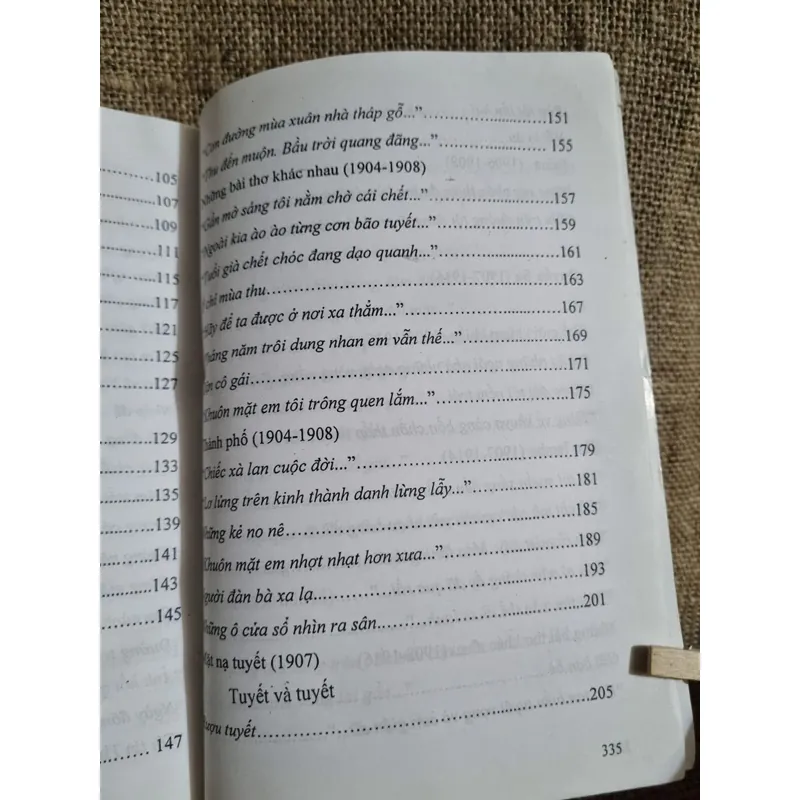 105
107
109
111
115
117
121
125
127
129
133
135
139
141
143
145
147
đường mùa xuân nhà tháp gỗ..."...........151
đến muộn. Bầu trời quang đãng..."........... 155
Những bài thơ khác nhau (1904-1908)
"Gần mờ sáng tôi nằm chờ cái chết..."...........157
"Ngoài kia ào ào từng cơn bão tuyết..."...........159
"Tuổi già chết chóc đang dạo quanh..."...........161
chỉ mùa thu...........163
"Hãy để ta được ở nơi xa thẳm..."...........167
năm trôi dung nhan em vẫn thế..."...........169
cô gái...........171
"Khuôn mặt em tôi trông quen lắm..."...........175
Thành phố (1904-1908)
"Chiếc xà lan cuộc đời..."...........179
"Lơ lửng trên kinh thành danh lừng lẫy..."...........181
Những kẻ no nê...........185
"Khuôn mặt em nhợt nhạt hơn xưa..."...........189
Người đàn bà xa lạ...........193
Những ô cửa sổ nhìn ra sân...........201
Mặt nạ tuyết (1907)
Tuyết và tuyết
Rượu tuyết...........205
335